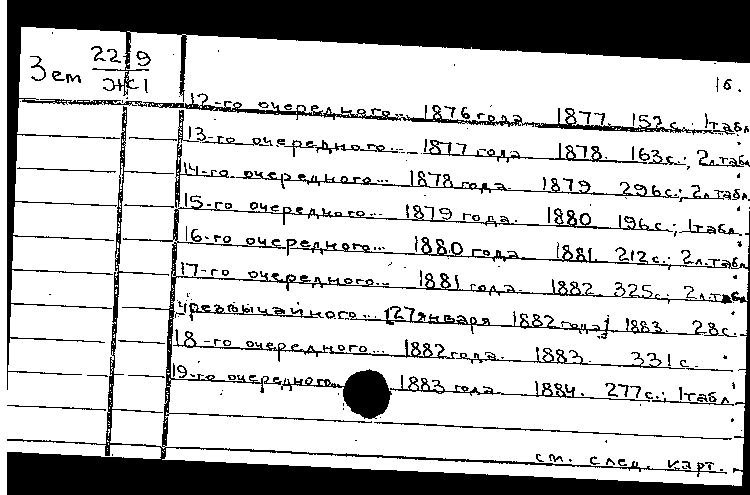 Зем 22.9
ЭЖ1
1б.
12-го очередного... 1876 года 1877. 152 с.; 1 табл
13-го очередного... 1877 года 1878. 163 с.; 2 л. табл
14-го очередного... 1878 года 1879. 296 с.; 2 л. табл.
15-го очередного... 1879 года. 1880 196 с.; 1 табл.
16-го очередного... 1880 года. 1881. 212 с.; 2 л. табл
17-го очередного... 1881 года. 1882. 325 с.; 2 л. табл
чрезвычайного... [27 января 1882 года] 1883. 28 с.
18-го очередного... 1882 года. 1883. 331 с.
19-го очередного... 1883 года 1884. 277 с.; 1 табл.
см. след. карт.